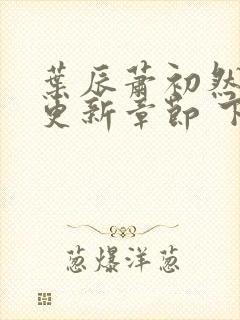 葉辰蕭初然
更新章節 下
葱爆洋葱